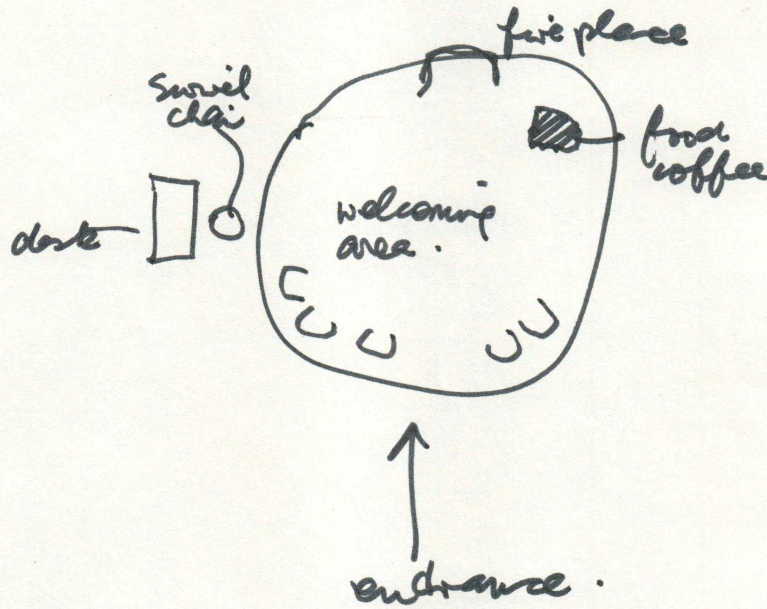 fireplace
swivel
chair
food
coffee
desk
welcoming
area.
entrance.